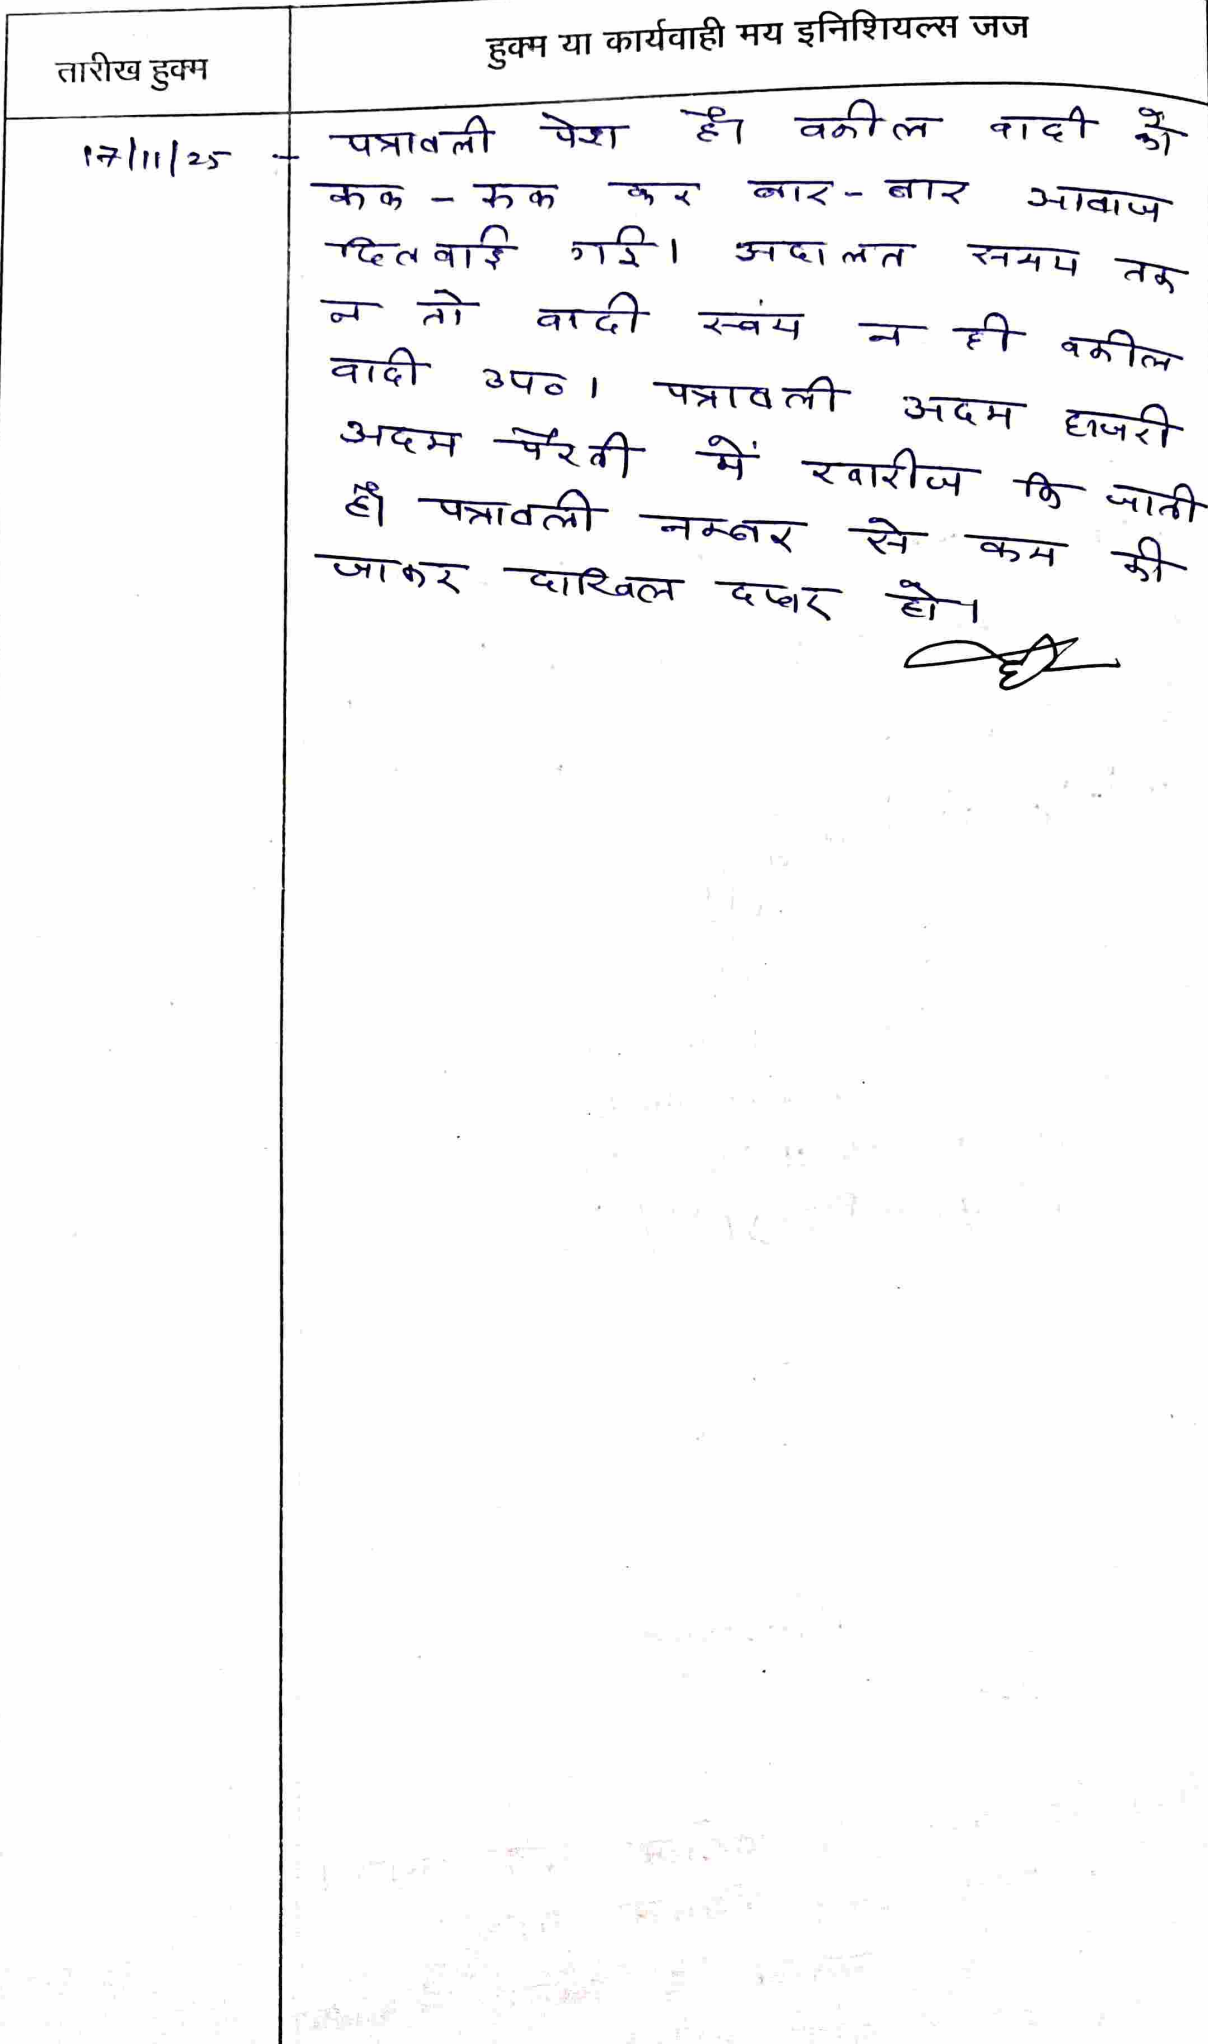 तारीख हुक्म
हुक्म या कार्यवाही मय इनिशियल्स जज
17/11/25 - पत्रावली पेश है। वकील वादी को
रूक - रूक कर बार - बार आवाज
दिलवाई गई। अदालत समय तक
न तो वादी स्वंय न ही वकील
वादी उप०। पत्रावली अदम हाजरी
अदम पैरवी में खारीज कि जाती
है। पत्रावली नम्बर से कम की
जाकर दाखिल दफ्तर हो।